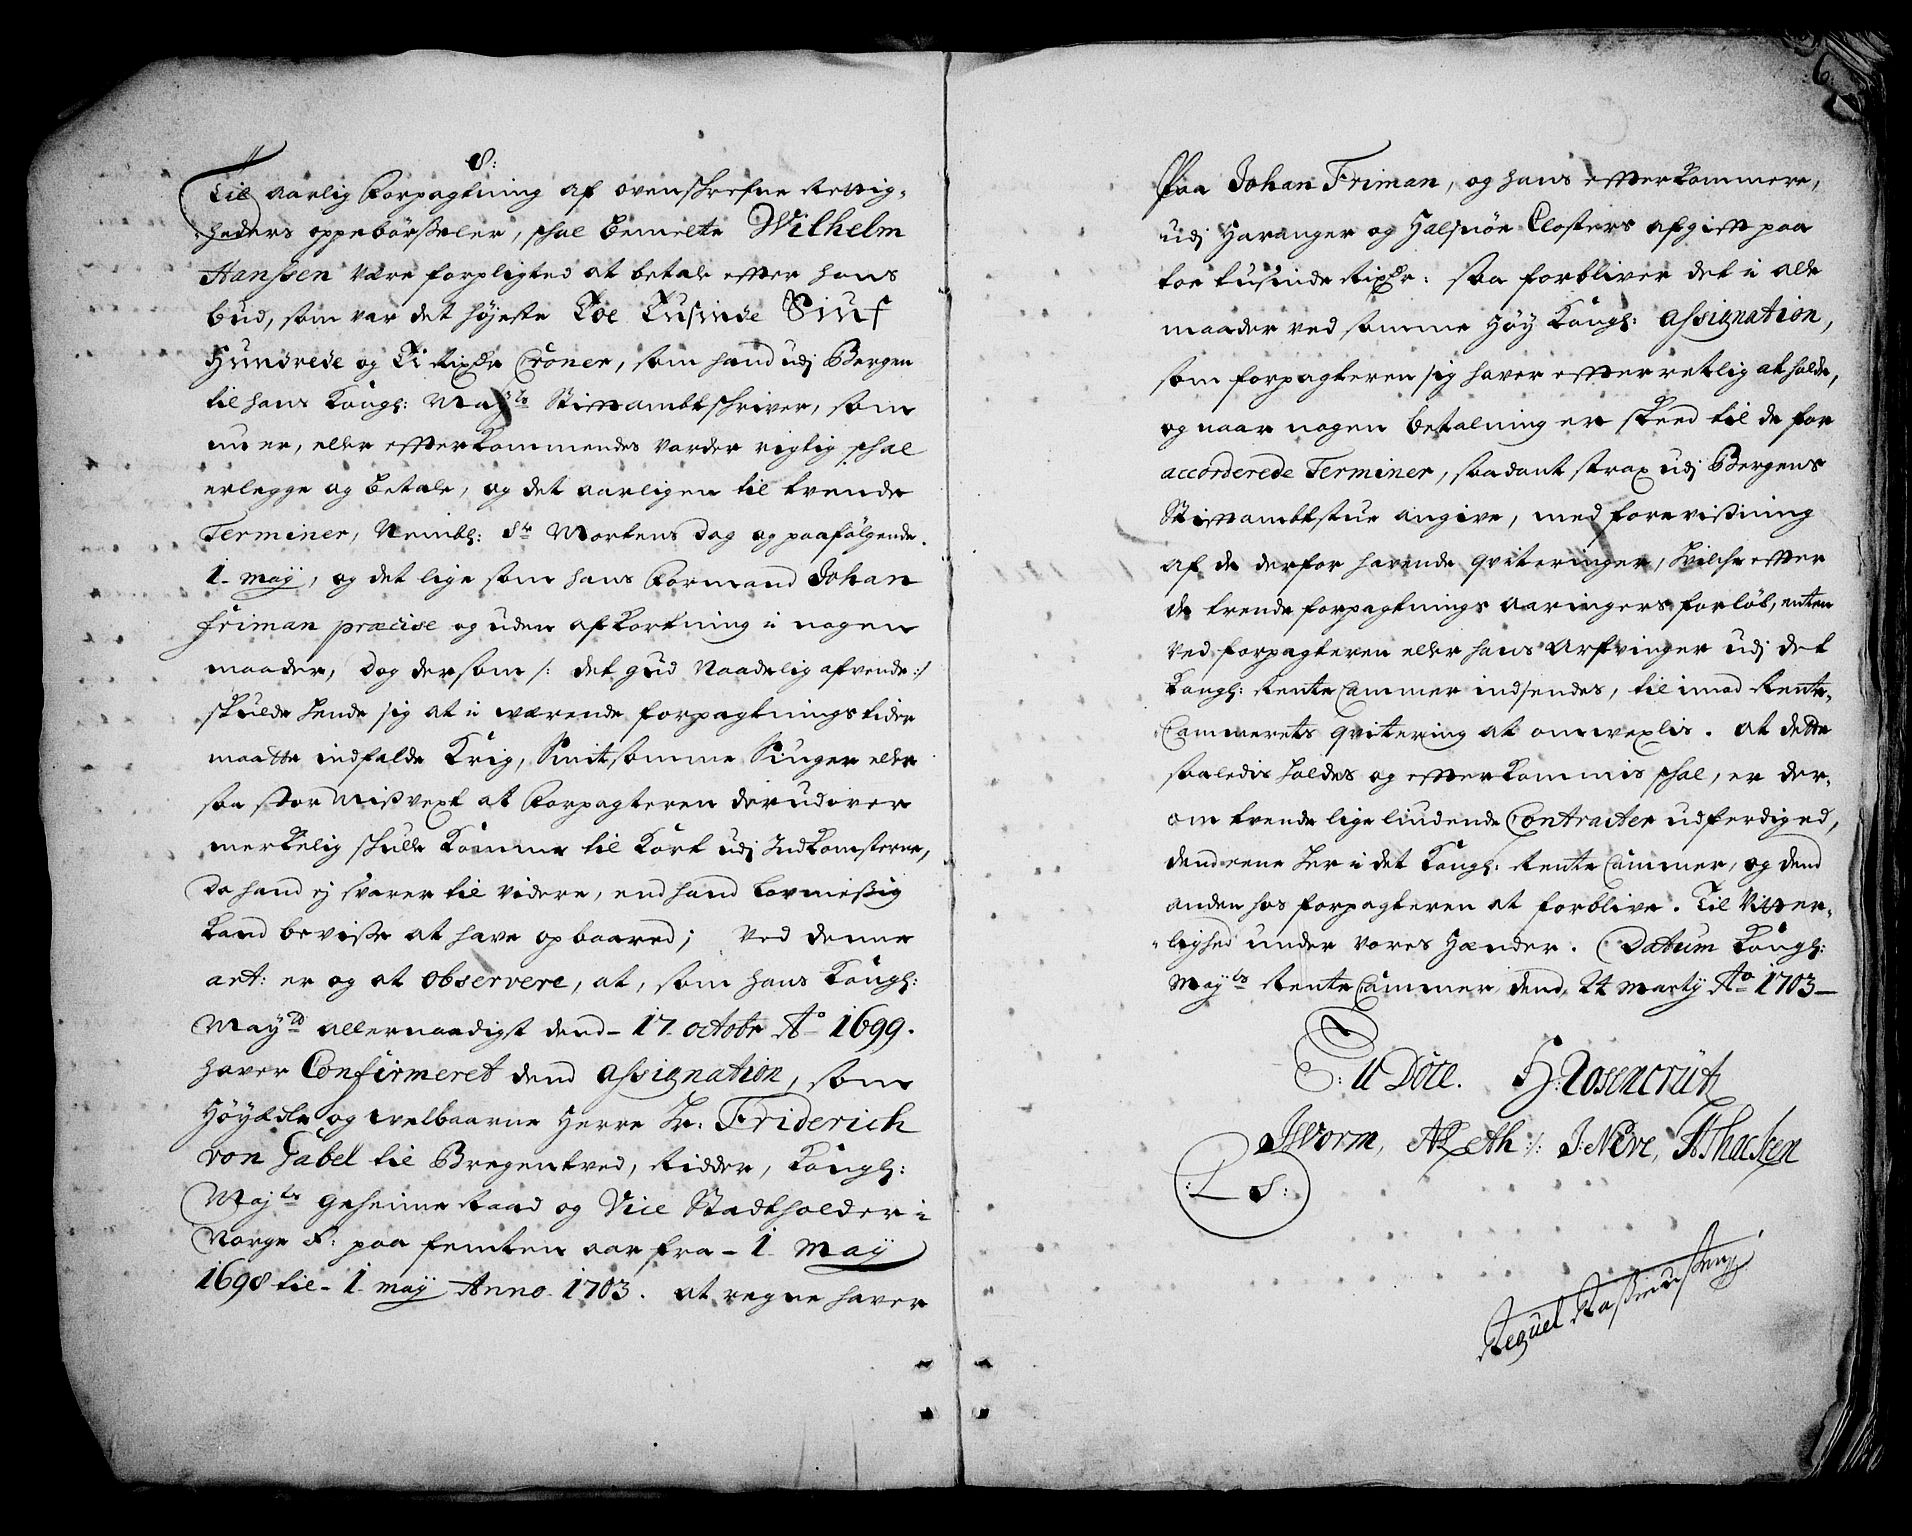 8:
Til aarlig Forpagtning af ovenschrefne Rettig-
heders oppebörßeler, schal bemelte Wilhelm
Hanssen være forpligted at betale effter hans
bud, som var det höjeste Toe Tusinde Siuf
Hundrede og Ti Rixdr Croner, som hand udj Bergen
til hans Kongl: Mayts Stifftambtschriver, som
nu er, eller effterkommendes vorder rigtig schal
erlegge og betale, og det aarligen til tvende
Terminer, Nembl: Ste Mortens dag og paafölgende
1 may, og det lige som hans Formand Johan
Friman præcise og uden afkortning i nogen
maader, dog dersom /: det gud Naadelig afvende :/
skulde hende sig at i værende forpagtnings tider
maatte indfalde Krig, Smitsomme Siuger eller
saa stor Mißvext at Forpagteren derudover
merkelig skulle komme til kort udj Indkomsterne,
da hand ej svarer til videre, end hand lovmeßig
kand beviße at have opbaared; Ved denne
art: er og at observere, at, som hans Kongl:
Mayts allernaadigst dend 17 octobr Ao 1699.
haver Confirmeret dend assignation, som
Höyædle og velbaarne Herre Hr. Friderich
von Gabel til Bregentved, Ridder, Kongl:
Mayts geheime Raad og Vice Stadtholder i
Norge &: paa femten aar fra 1 may
1698 til 1 may Anno 1703. at regne haver
6
Paa Johan Friman, og hans effterkommere,
udj Haranger og Halsnöe Closters afgifft paa
toe tusinde Rixdr: saa forbliver det i alle
maader ved samme Höy Kongl: assignation,
som forpagteren sig haver effterretlig at holde,
og naar nogen betalning er skeed til de for
accorderede Terminer, saadant strax udj Bergens
Stifftambtstue angive, med forevißning
af de derfor havende qviteringer, hvilche effter
de trende forpagtnings aaringers forlöb, enten
ved forpagteren eller hans Arfvinger udj det
Kongl: Rente Cammer indsendes, til imod Rente-
Cammerets qvitering at omvexlis. at dette
saaledis holdes og effterkommis schal, er der-
om tvende lige liudende Contracter udferdiged,
dend eene her i det Kongl: Rente Cammer, og dend
anden hos forpagteren at forblive. Til Vitter-
lighed under vores Hænder. Datum Kongl:
Mayts Rente Cammer, dend 24 Marty Ao 1703
H: Rosencrütz
JWorm, J: Neve, A Thacken
L S: